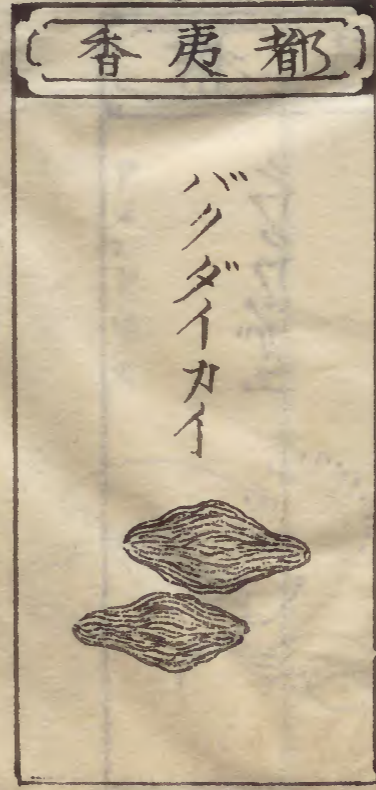 都夷香
バクダイカイ